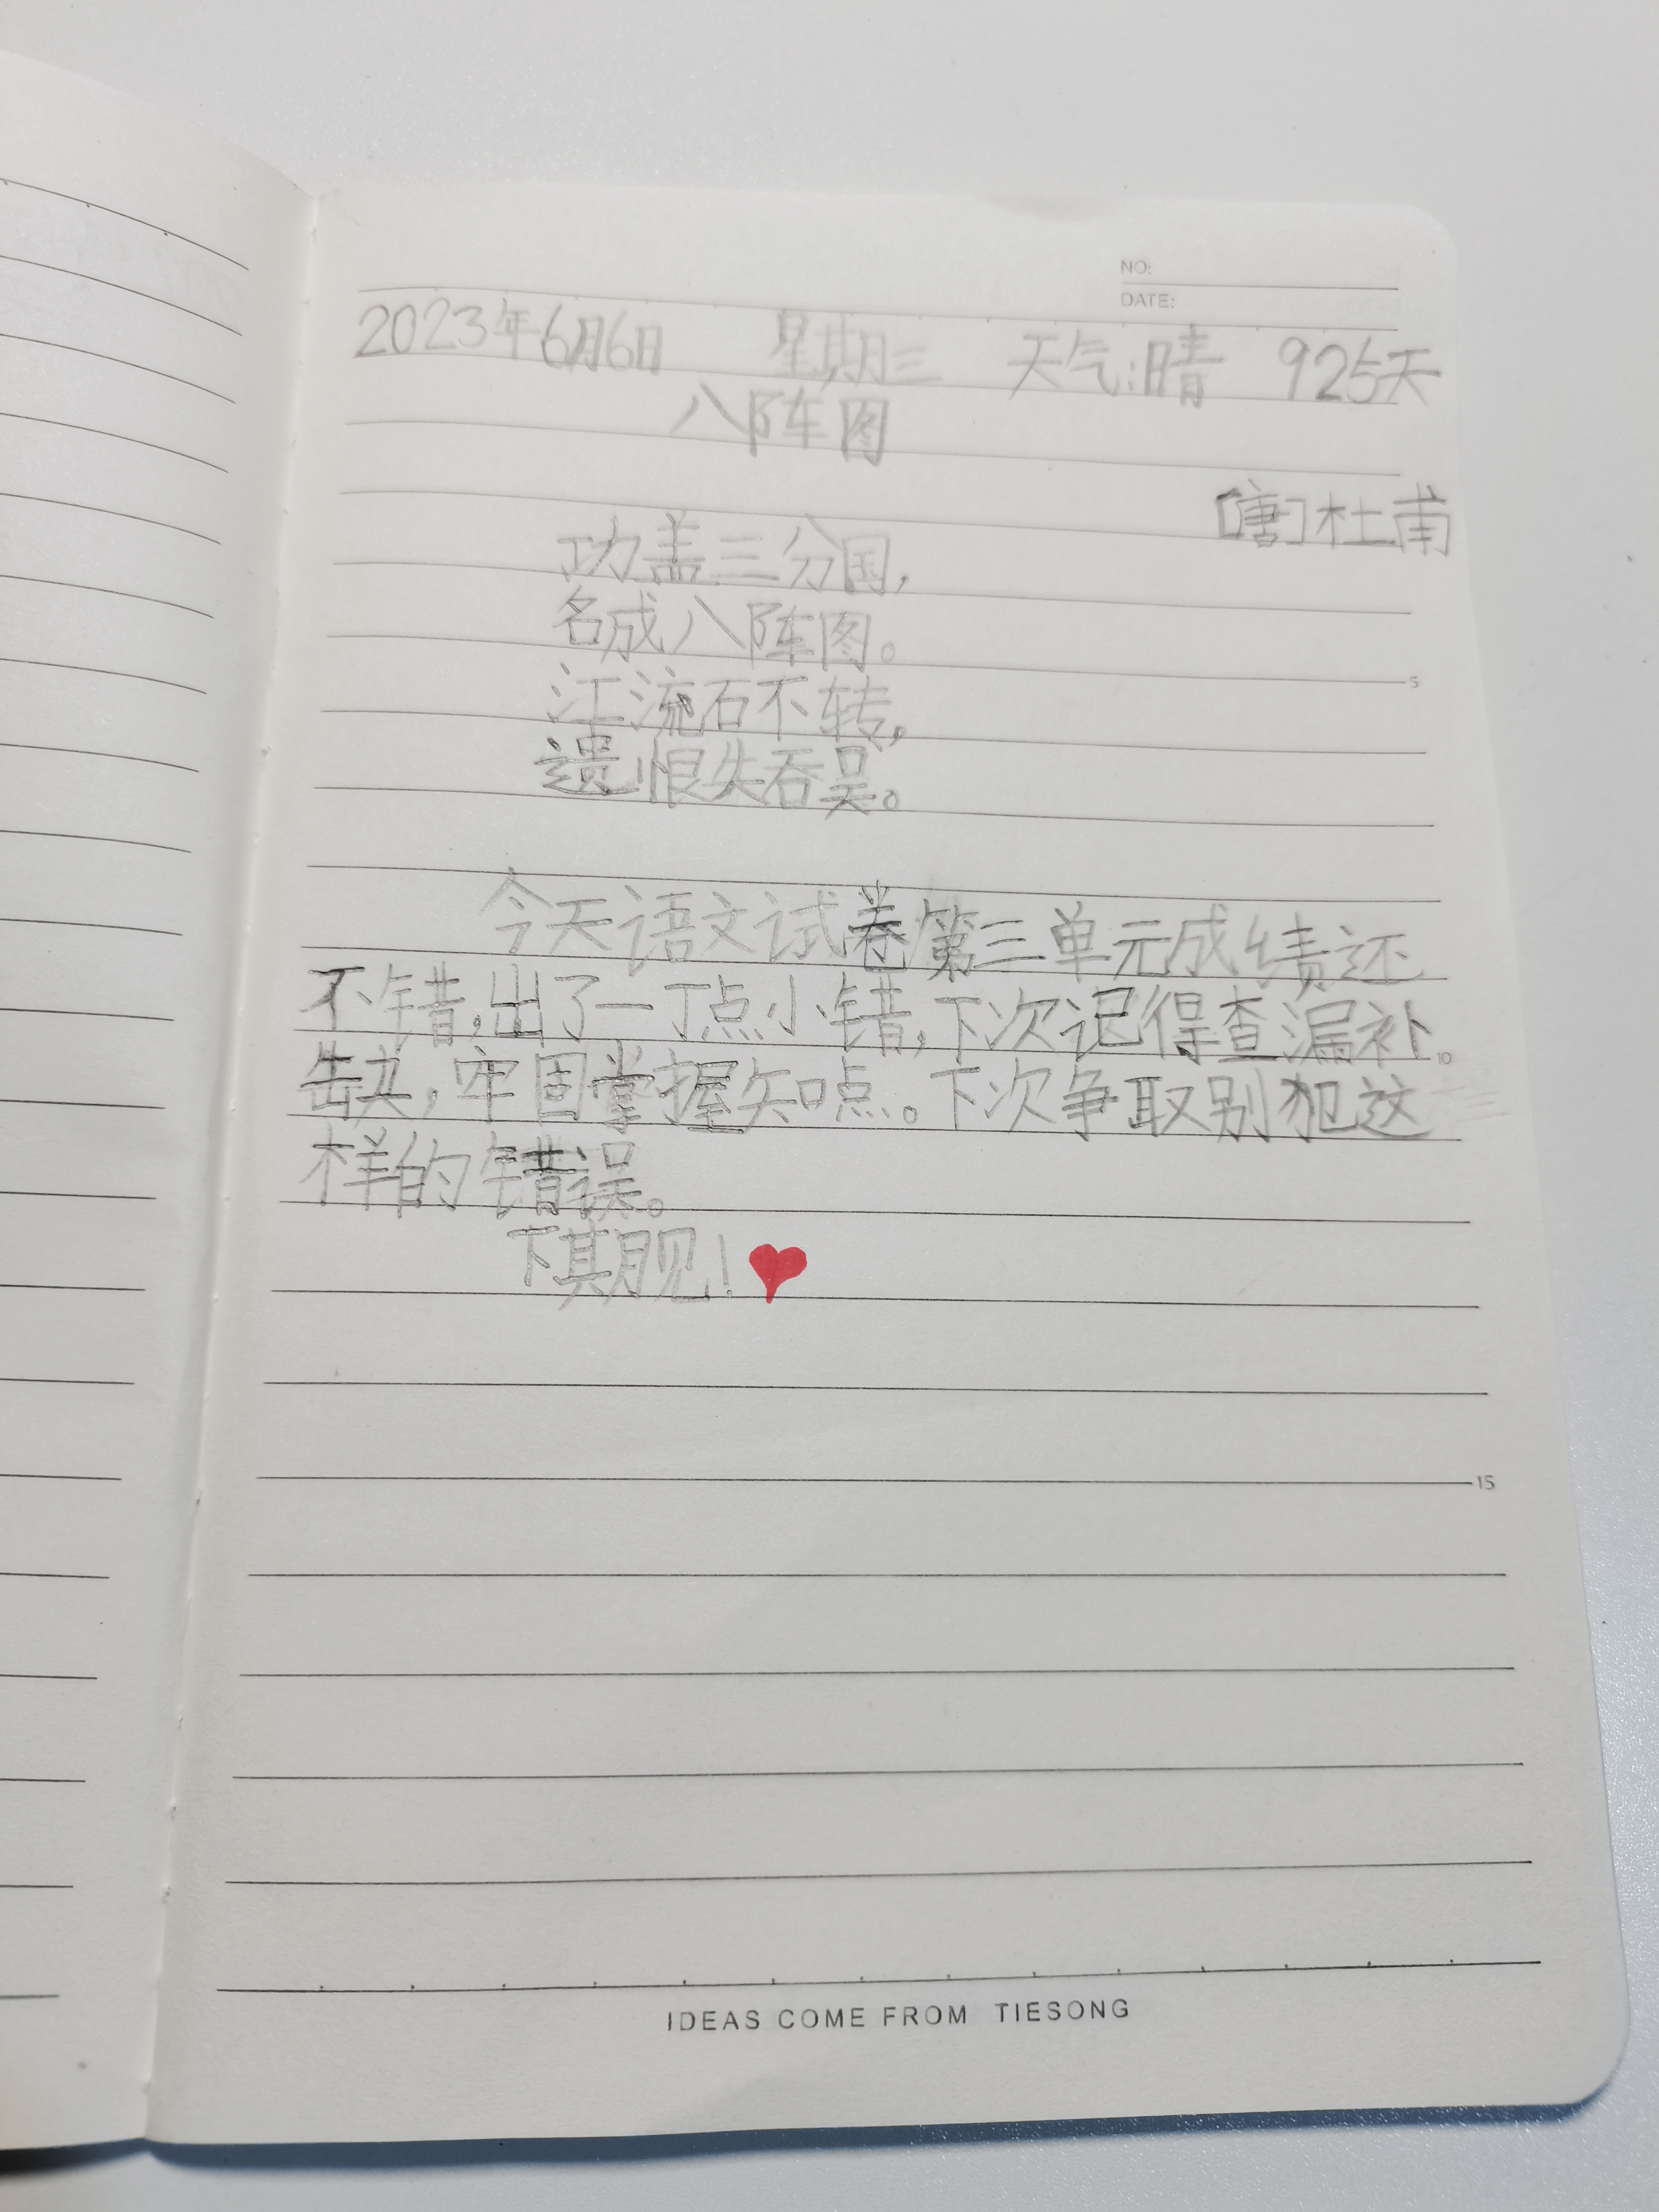 NO:
DATE:
2023年6月6日 星期三 天气:晴 925天
八阵图
[唐]杜甫
功盖三分国,
名成八阵图。
5
江流石不转,
遗恨失吞吴。
今天语文试卷第三单元成绩还
不错,出了一丁点小错,下次记得查漏补
10
缺,牢固掌握知点。下次争取别犯这
样的错误。
下期见!
15
IDEAS COME FROM TIESONG